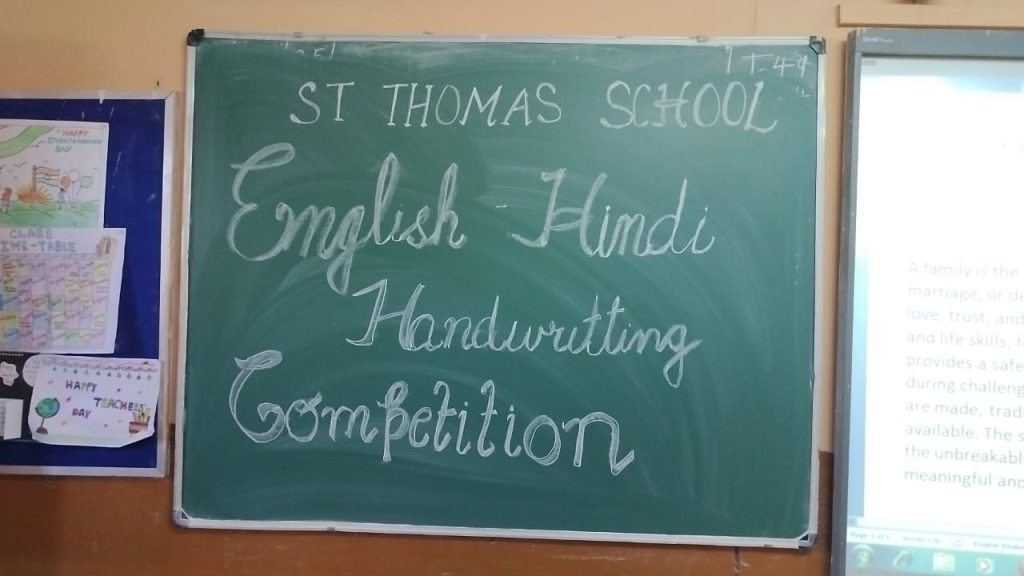 T-49
ST THOMAS SCHOOL
English - Hindi
Handwritting
Competition
HAPPY
INDEPENDENCE
DAY
CLASS
TIME-TABLE
HAPPY
TEACHERS
DAY
A family is the
marriage, or
love, trust, and
and life skills,
provides a safe
during
are made,
available. The
the
meaningful and
Page 1 of 1